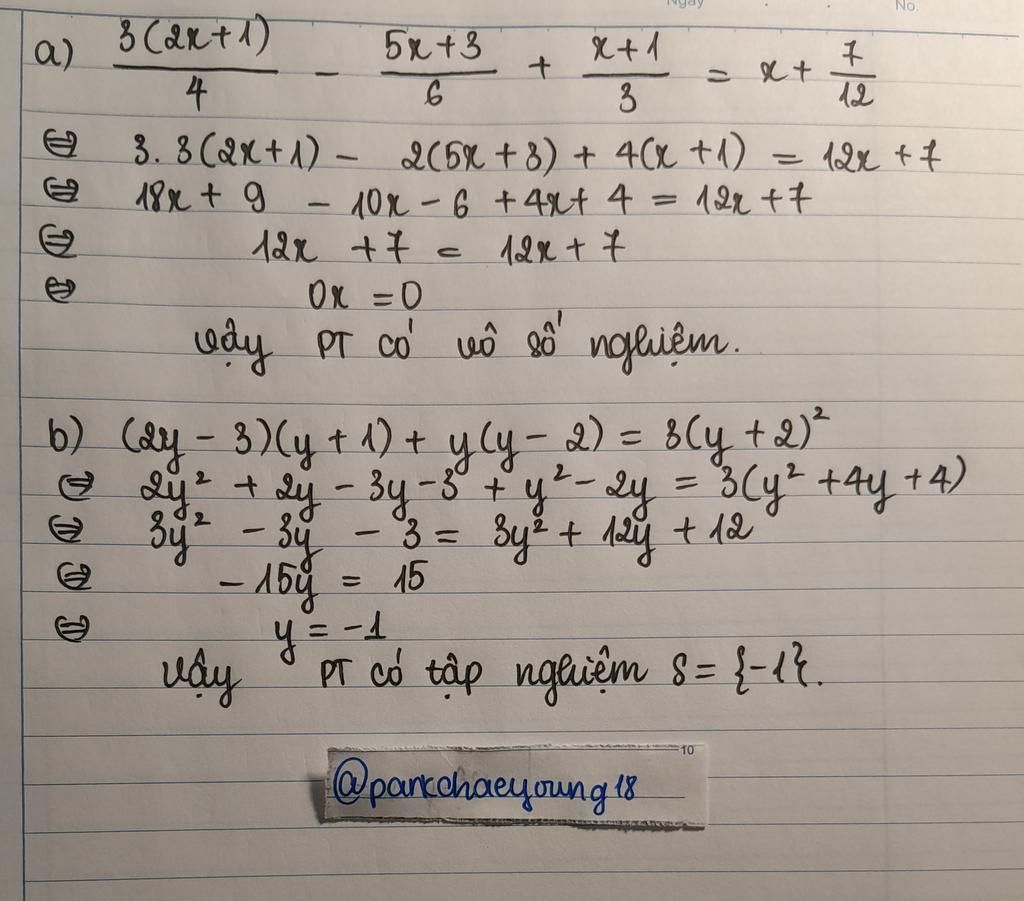 Ngày
No.
a) 3(2x+1)/4 - (5x+3)/6 + (x+1)/3 = x + 7/12
⇔ 3.3(2x+1) - 2(5x+3) + 4(x+1) = 12x+7
⇔ 18x + 9 - 10x - 6 + 4x + 4 = 12x+7
⇔ 12x + 7 = 12x + 7
⇔ 0x = 0
Vậy PT có vô số nghiệm.
b) (2y - 3)(y + 1) + y(y - 2) = 3(y + 2)²
⇔ 2y² + 2y - 3y - 3 + y² - 2y = 3(y² + 4y + 4)
⇔ 3y² - 3y - 3 = 3y² + 12y + 12
⇔ -15y = 15
⇔ y = -1
Vậy PT có tập nghiệm S = {-1}.
10
@parkchaeyoung18